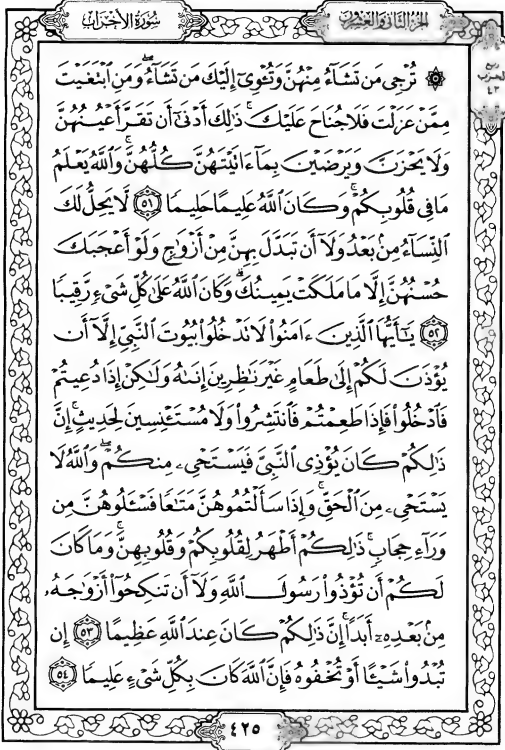 سورة الأحزاب
الجزء الثاني والعشرون
ربع
الحزب
٤٣
۞ تُرْجِى مَن تَشَآءُ مِنْهُنَّ وَتُـْٔوِىٓ إِلَيْكَ مَن تَشَآءُ ۖ وَمَنِ ٱبْتَغَيْتَ
مِمَّنْ عَزَلْتَ فَلَا جُنَاحَ عَلَيْكَ ۚ ذَٰلِكَ أَدْنَىٰٓ أَن تَقَرَّ أَعْيُنُهُنَّ
وَلَا يَحْزَنَّ وَيَرْضَيْنَ بِمَآ ءَاتَيْتَهُنَّ كُلُّهُنَّ ۚ وَٱللَّهُ يَعْلَمُ
مَا فِى قُلُوبِكُمْ ۚ وَكَانَ ٱللَّهُ عَلِيمًا حَلِيمًا ٥١ لَّا يَحِلُّ لَكَ
ٱلنِّسَآءُ مِنۢ بَعْدُ وَلَآ أَن تَبَدَّلَ بِهِنَّ مِنْ أَزْوَٰجٍ وَلَوْ أَعْجَبَكَ
حُسْنُهُنَّ إِلَّا مَا مَلَكَتْ يَمِينُكَ ۗ وَكَانَ ٱللَّهُ عَلَىٰ كُلِّ شَىْءٍ رَّقِيبًا
٥٢ يَـٰٓأَيُّهَا ٱلَّذِينَ ءَامَنُوا۟ لَا تَدْخُلُوا۟ بُيُوتَ ٱلنَّبِىِّ إِلَّآ أَن
يُؤْذَنَ لَكُمْ إِلَىٰ طَعَامٍ غَيْرَ نَـٰظِرِينَ إِنَىٰهُ وَلَـٰكِنْ إِذَا دُعِيتُمْ
فَٱدْخُلُوا۟ فَإِذَا طَعِمْتُمْ فَٱنتَشِرُوا۟ وَلَا مُسْتَـْٔنِسِينَ لِحَدِيثٍ ۚ إِنَّ
ذَٰلِكُمْ كَانَ يُؤْذِى ٱلنَّبِىَّ فَيَسْتَحْىِۦ مِنكُمْ ۖ وَٱللَّهُ لَا
يَسْتَحْىِۦ مِنَ ٱلْحَقِّ ۚ وَإِذَا سَأَلْتُمُوهُنَّ مَتَـٰعًا فَسْـَٔلُوهُنَّ مِن
وَرَآءِ حِجَابٍ ۚ ذَٰلِكُمْ أَطْهَرُ لِقُلُوبِكُمْ وَقُلُوبِهِنَّ ۚ وَمَا كَانَ
لَكُمْ أَن تُؤْذُوا۟ رَسُولَ ٱللَّهِ وَلَآ أَن تَنكِحُوٓا۟ أَزْوَٰجَهُۥ
مِنۢ بَعْدِهِۦٓ أَبَدًا ۚ إِنَّ ذَٰلِكُمْ كَانَ عِندَ ٱللَّهِ عَظِيمًا ٥٣ إِن
تُبْدُوا۟ شَيْـًٔا أَوْ تُخْفُوهُ فَإِنَّ ٱللَّهَ كَانَ بِكُلِّ شَىْءٍ عَلِيمًا ٥٤
٤٢٥